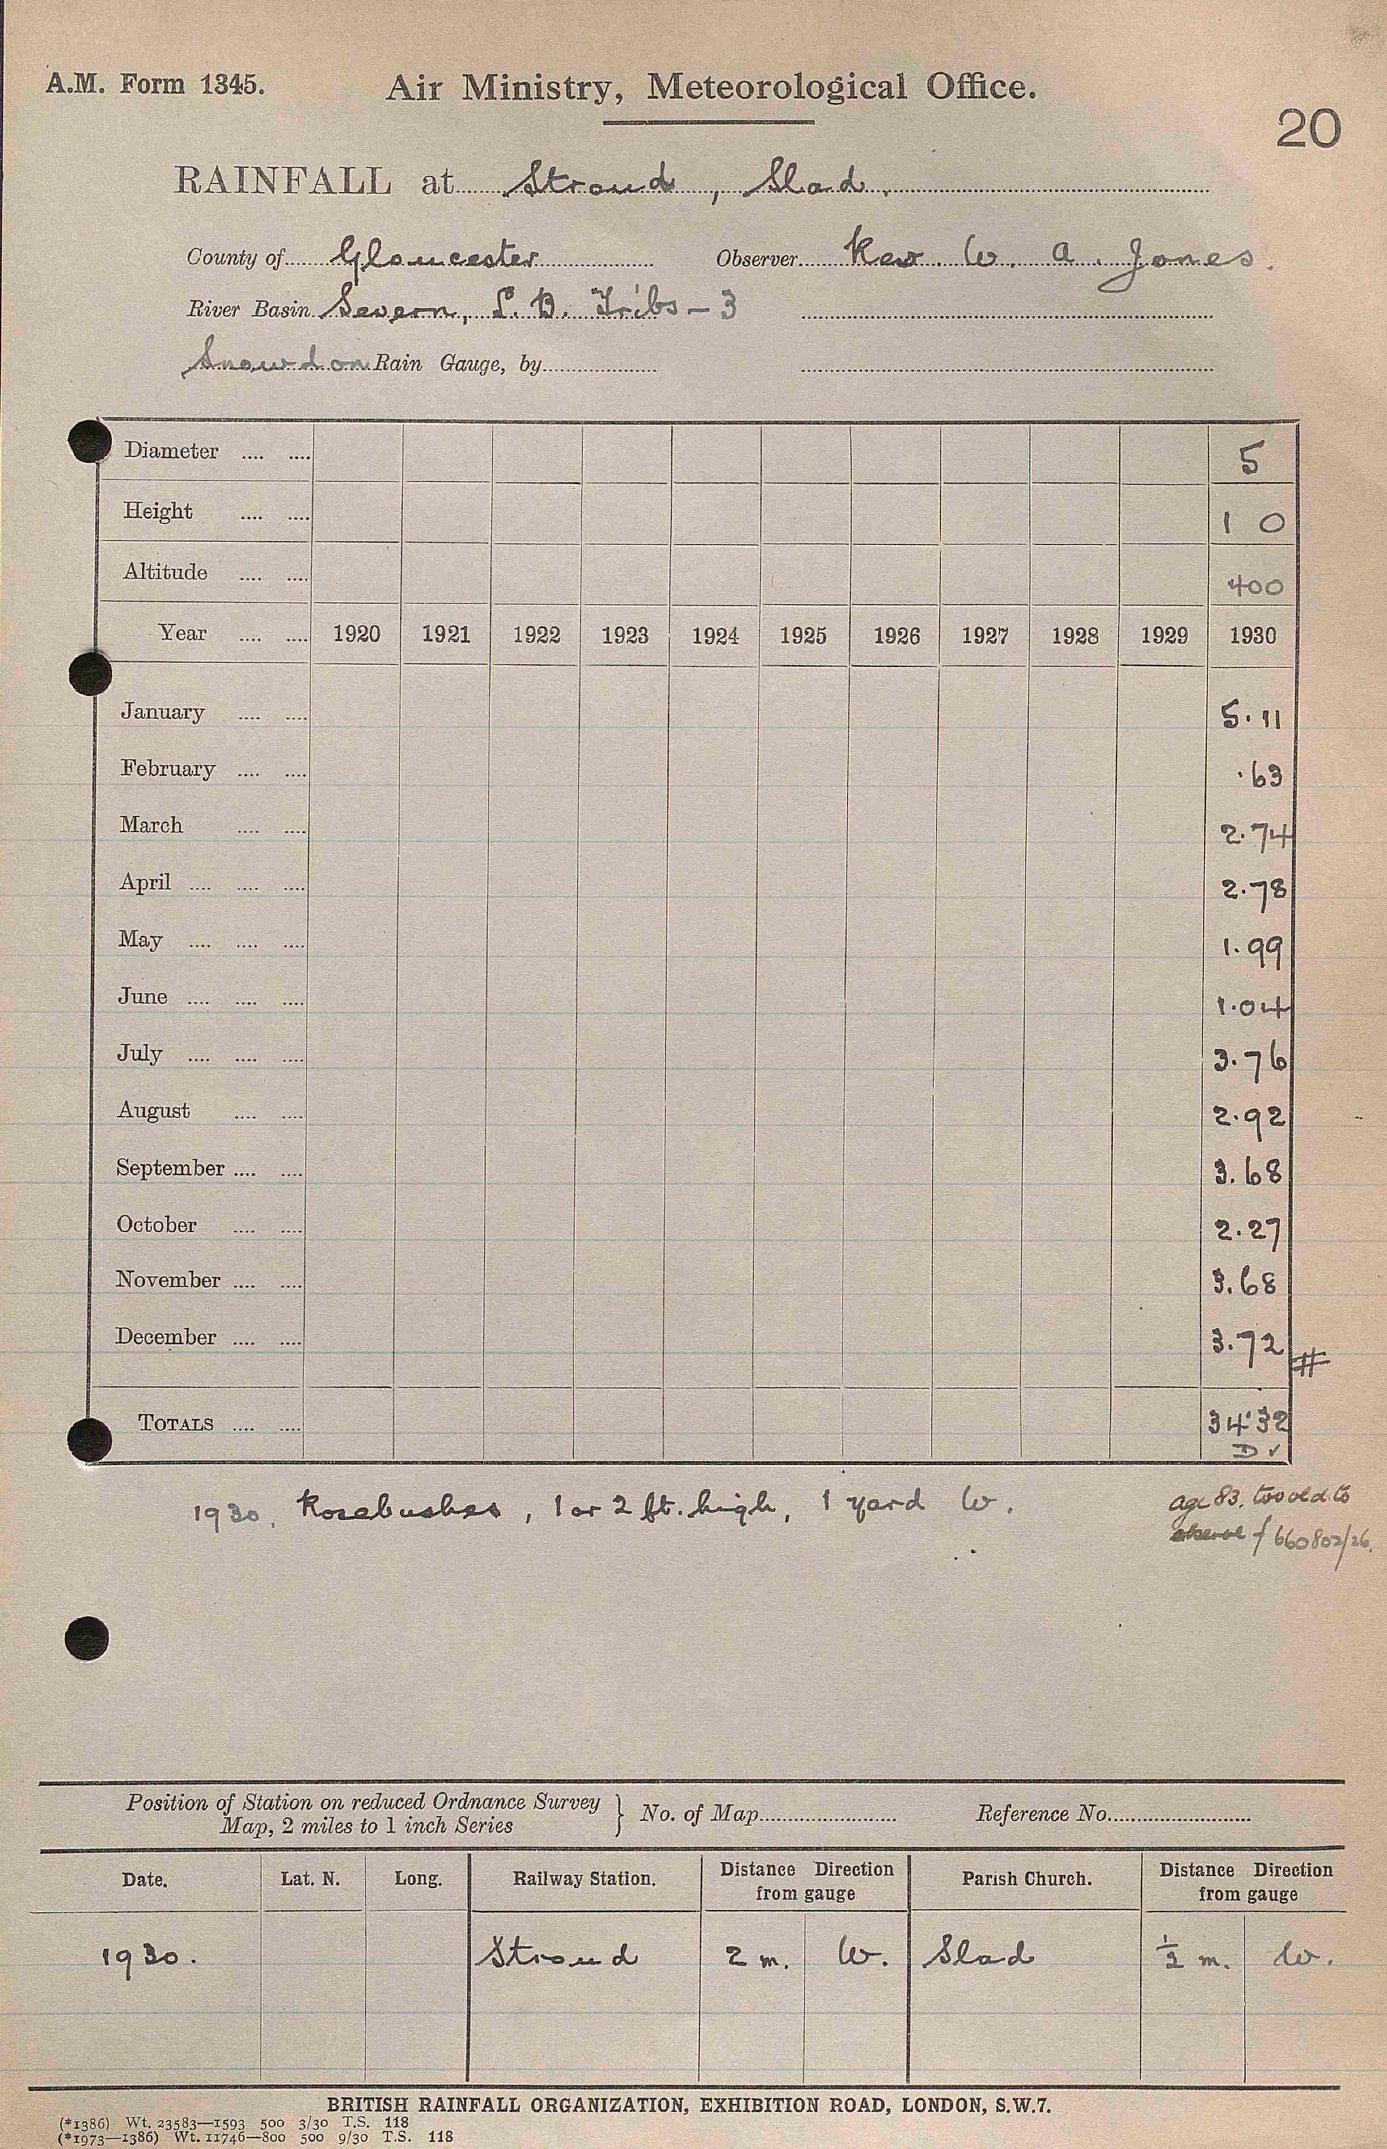 A.M. Form 1345.
Air Ministry, Meteorological Office.
20
RAINFALL at Stroud, Slad.
County of Gloucester Observer Rev. W. A. Jones.
River Basin Severn, L. B. Tribs - 3
Snowdon Rain Gauge, by
Diameter .... .... 5
Height .... .... 1 0
Altitude .... .... 400
Year .... .... 1920 1921 1922 1923 1924 1925 1926 1927 1928 1929 1930
January .... .... 5.11
February .... .... .63
March .... .... 2.74
April .... .... .... 2.78
May .... .... .... 1.99
June .... .... .... 1.04
July .... .... .... 3.76
August .... .... 2.92
September .... .... 3.68
October .... .... 2.27
November .... .... 3.68
December .... .... 3.72 #
TOTALS .... .... 34.32
D ✓
1930. Rosebushes, 1 or 2 ft. high, 1 yard W.
age 83, too old to
observe f 660802/26.
Position of Station on reduced Ordnance Survey
Map, 2 miles to 1 inch Series } No. of Map Reference No.
Date. Lat. N. Long. Railway Station. Distance Direction from gauge Parish Church. Distance Direction from gauge
1930. Stroud 2 m. W. Slad ½ m. W.
BRITISH RAINFALL ORGANIZATION, EXHIBITION ROAD, LONDON, S.W.7.
(*1386) Wt. 23583—1593 500 3/30 T.S. 118
(*1973—1386) Wt. 11746—800 500 9/30 T.S. 118